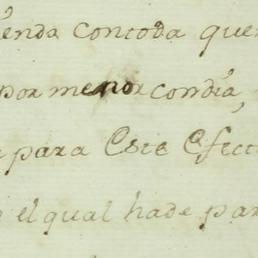 enda contoda quen
por menor condia,
para Este Efect
el qual hade par